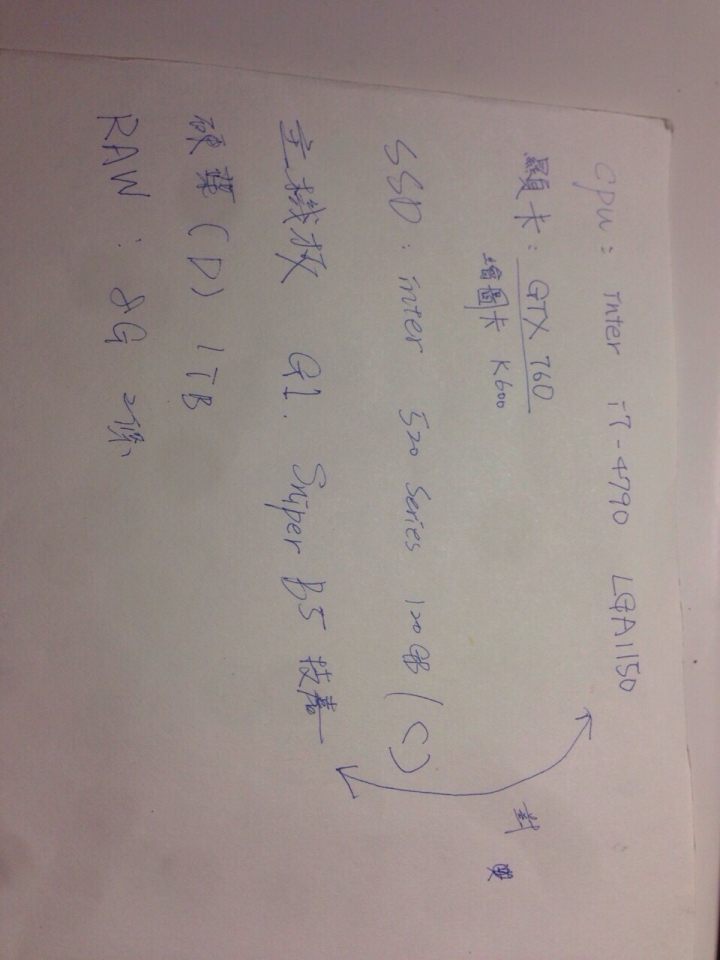 cpu: inter i7-4790 LGA1150
顯卡: GTX 760
繪圖卡 K600
SSD: inter 520 Series 120GB (C)
主機板 G1. Sniper B5 技嘉
硬葉 (D) 1TB
RAW: 8G 2條
封